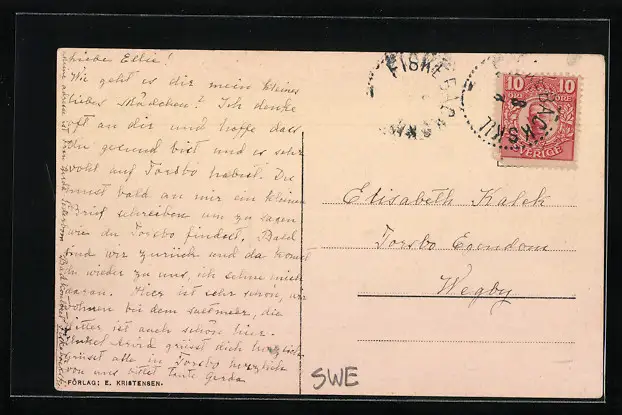 Liebe Ellie!
Wie geht es dir mein kleines
liebes Mädchen? Ich denke
oft an dir und hoffe dass
du gesund bist und es sehr
wohl auf Torsbo habest. Du
musst bald an mir ein kleinen
Brief schreiben um zu sagen
wie du Torsbo findest. Bald
sind wir zurück und da kommst
du wieder zu uns, ich sehne mich
daran. Hier ist sehr schön, wir
wohnen bei dem
ist auch schön hier.
Onkel Arvid grüsst dich herzlich
grüsst alle in Torsbo herzlich
von uns Tante Gerda
FÖRLAG; E. KRISTENSEN.
FISKEBÄCKSKIL
10 10
ÖRE ÖRE
SVERIGE
Elisabeth Kalek
Torsbo Egendom
Wegby
SWE